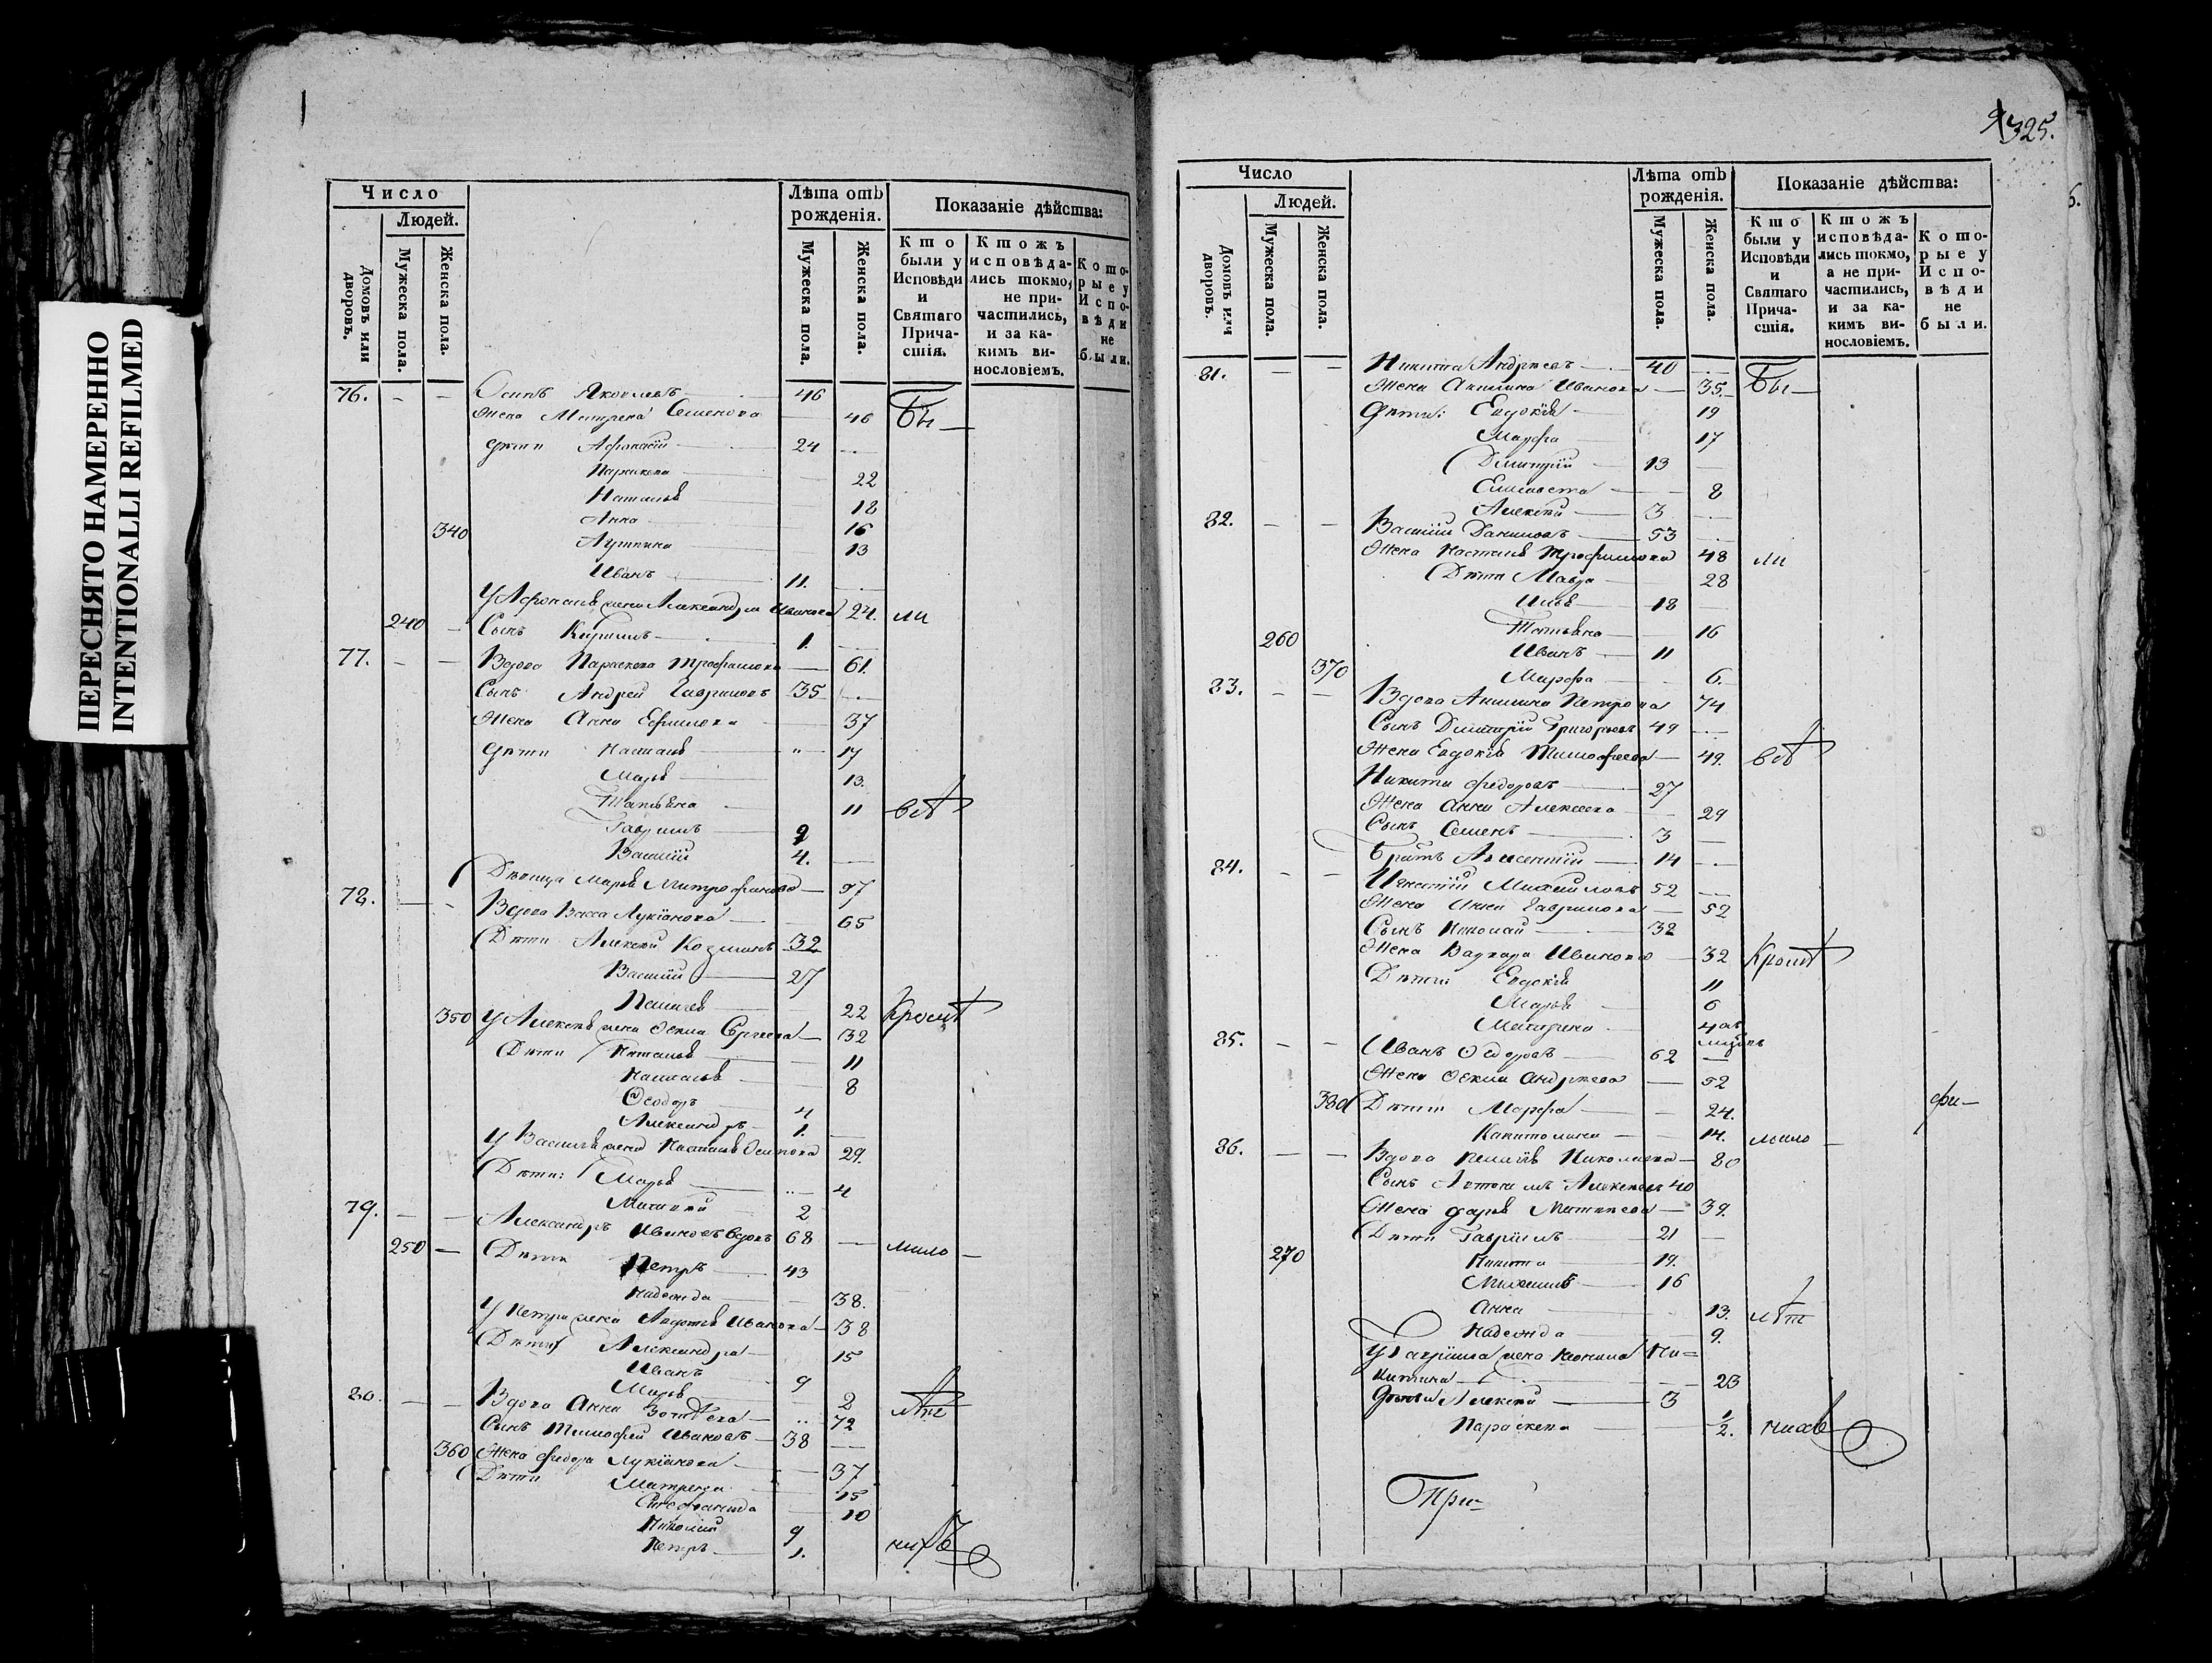 ПЕРЕСНЯТО НАМЕРЕННО
INTENTIONALLI REFILMED
Число
Людей.
Домовъ или дворовъ.
Мужеска пола.
Женска пола.
Лѣта отъ рожденія.
Мужеска пола.
Женска пола.
Показаніе дѣйства:
Кто были у Исповѣди и Святаго Причастія.
Ктожъ исповѣдались токмо, не причастились, и за какимъ винословіемъ.
Которые у Исповѣди не были.
76. - - Осипъ Яковлевъ 46
Жена Матрена Семенова 46 Бы-
Дѣти Афанасій 24
Параскева 22
Наталья 18
Анна 16
340
13
Иванъ 11.
У Афанасья жена Александра Иванова 24. ли
240 Сынъ Кирилъ 1.
77. - - Вдова Параскева Трофимова 61.
Сынъ Андрей Гавриловъ 35
Жена Анна Ефимова 37
Дѣти Наталья 17
Марья 13.
Татьяна 11 всѣ
Гаврилъ 9
Василій 4.
Дѣвица Марья Митрофанова 37
78. Вдова Васса Лукіанова 65
Дѣти Алексѣй Козминъ 32
Василій 27
Пелагея 22 Кромѣ
350 У Алексѣя жена Сергеева 32
Дѣти Наталья 11
Наталья 8
Ѳеодоръ 4
Александръ 1.
У Василья жена Наталья Осипова 29.
Дѣти: Марья 4
2
79. Александръ Ивановъ вдовъ 68
250 Дѣти Петръ 43 мало-
Надежда 38.
У Петра жена Авдотья Иванова 38
Дѣти Александра 15
Иванъ 9
Марья 2
80. Вдова Анна 72 лѣт
Сынъ Тимофей Ивановъ 38
360 Жена Федора Лукіанова 37
Дѣти Матрена 15
10
Николай 9
Петръ 1.
325.
Число
Людей.
Домовъ или дворовъ.
Мужеска пола.
Женска пола.
Лѣта отъ рожденія.
Мужеска пола.
Женска пола.
Показаніе дѣйства:
Кто были у Исповѣди и Святаго Причастія.
Ктожъ исповѣдались токмо, а не причастились, и за какимъ винословіемъ.
Которые у Исповѣди не были.
81. - - Никита Андреевъ 40
Жена Акилина Иванова 35. Бы-
Дѣти: Евдокія 19
Марфа 17
Дмитрій 13
Елисавета 8
Алексѣй 3
82. - - Василій Даниловъ 53
Жена Наталья Трофимова 48 ли
Дѣти Мавра 28
Илья 18
Татьяна 16
260 Иванъ 11
370 Марфа 6.
83. - - Вдова Акилина Петрова 74
Сынъ Дмитрій Григорьевъ 49
Жена Евдокія Тимофеева 49. всѣ
Никита Федоровъ 27
Жена Анна Алексеева 29
Сынъ Семенъ 3
Братъ 14
84. - - Игнатій Михайловъ 52
Жена Анна Гаврилова 52
Сынъ Николай 32
Жена Варвара Иванова 32 Кромѣ
Дѣти: Евдокія 11
Марья 6
Матрена 4
85. - - Иванъ Ѳедоровъ 62
Жена Андреева 52
380 Дѣти Марфа 24.
Капитолина 14. мало
86. - - Вдова Николаева 80
Сынъ Алексѣевъ 40
Жена Дарья Матвѣева 39.
Дѣти Гавріилъ 21
270 Никита 19.
Михаилъ 16
Анна 13. лѣт
Надежда 9.
У Гавріила жена Ки=
23
Дѣти Алексѣй 3
Параскева 1/2.
При-